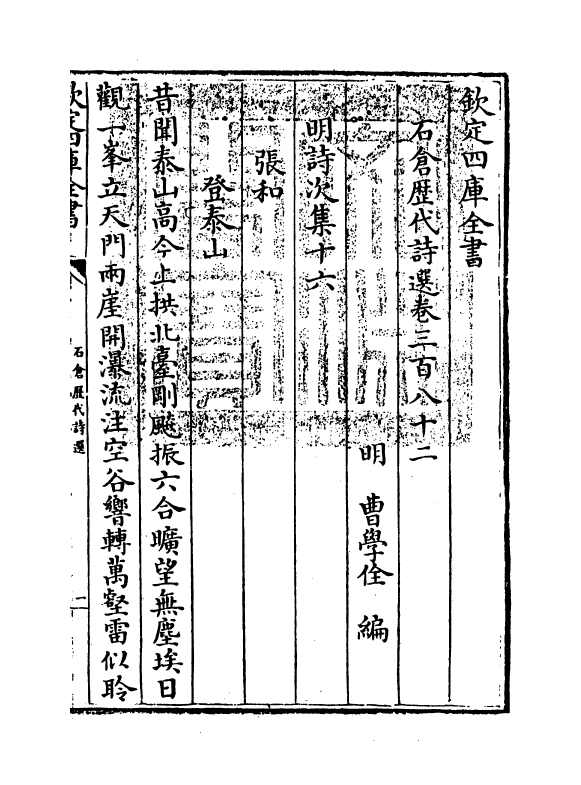 欽定四庫全書
石倉歴代詩選卷三百八十二
明　曹學佺　編
明詩次集十六
張和
登泰山
昔聞泰山高今上拱北臺剛飈振六合曠望無塵埃日
觀一峯立天門兩崖開瀑流注空谷響轉萬壑雷似聆
欽定四庫全書
石倉歴代詩選